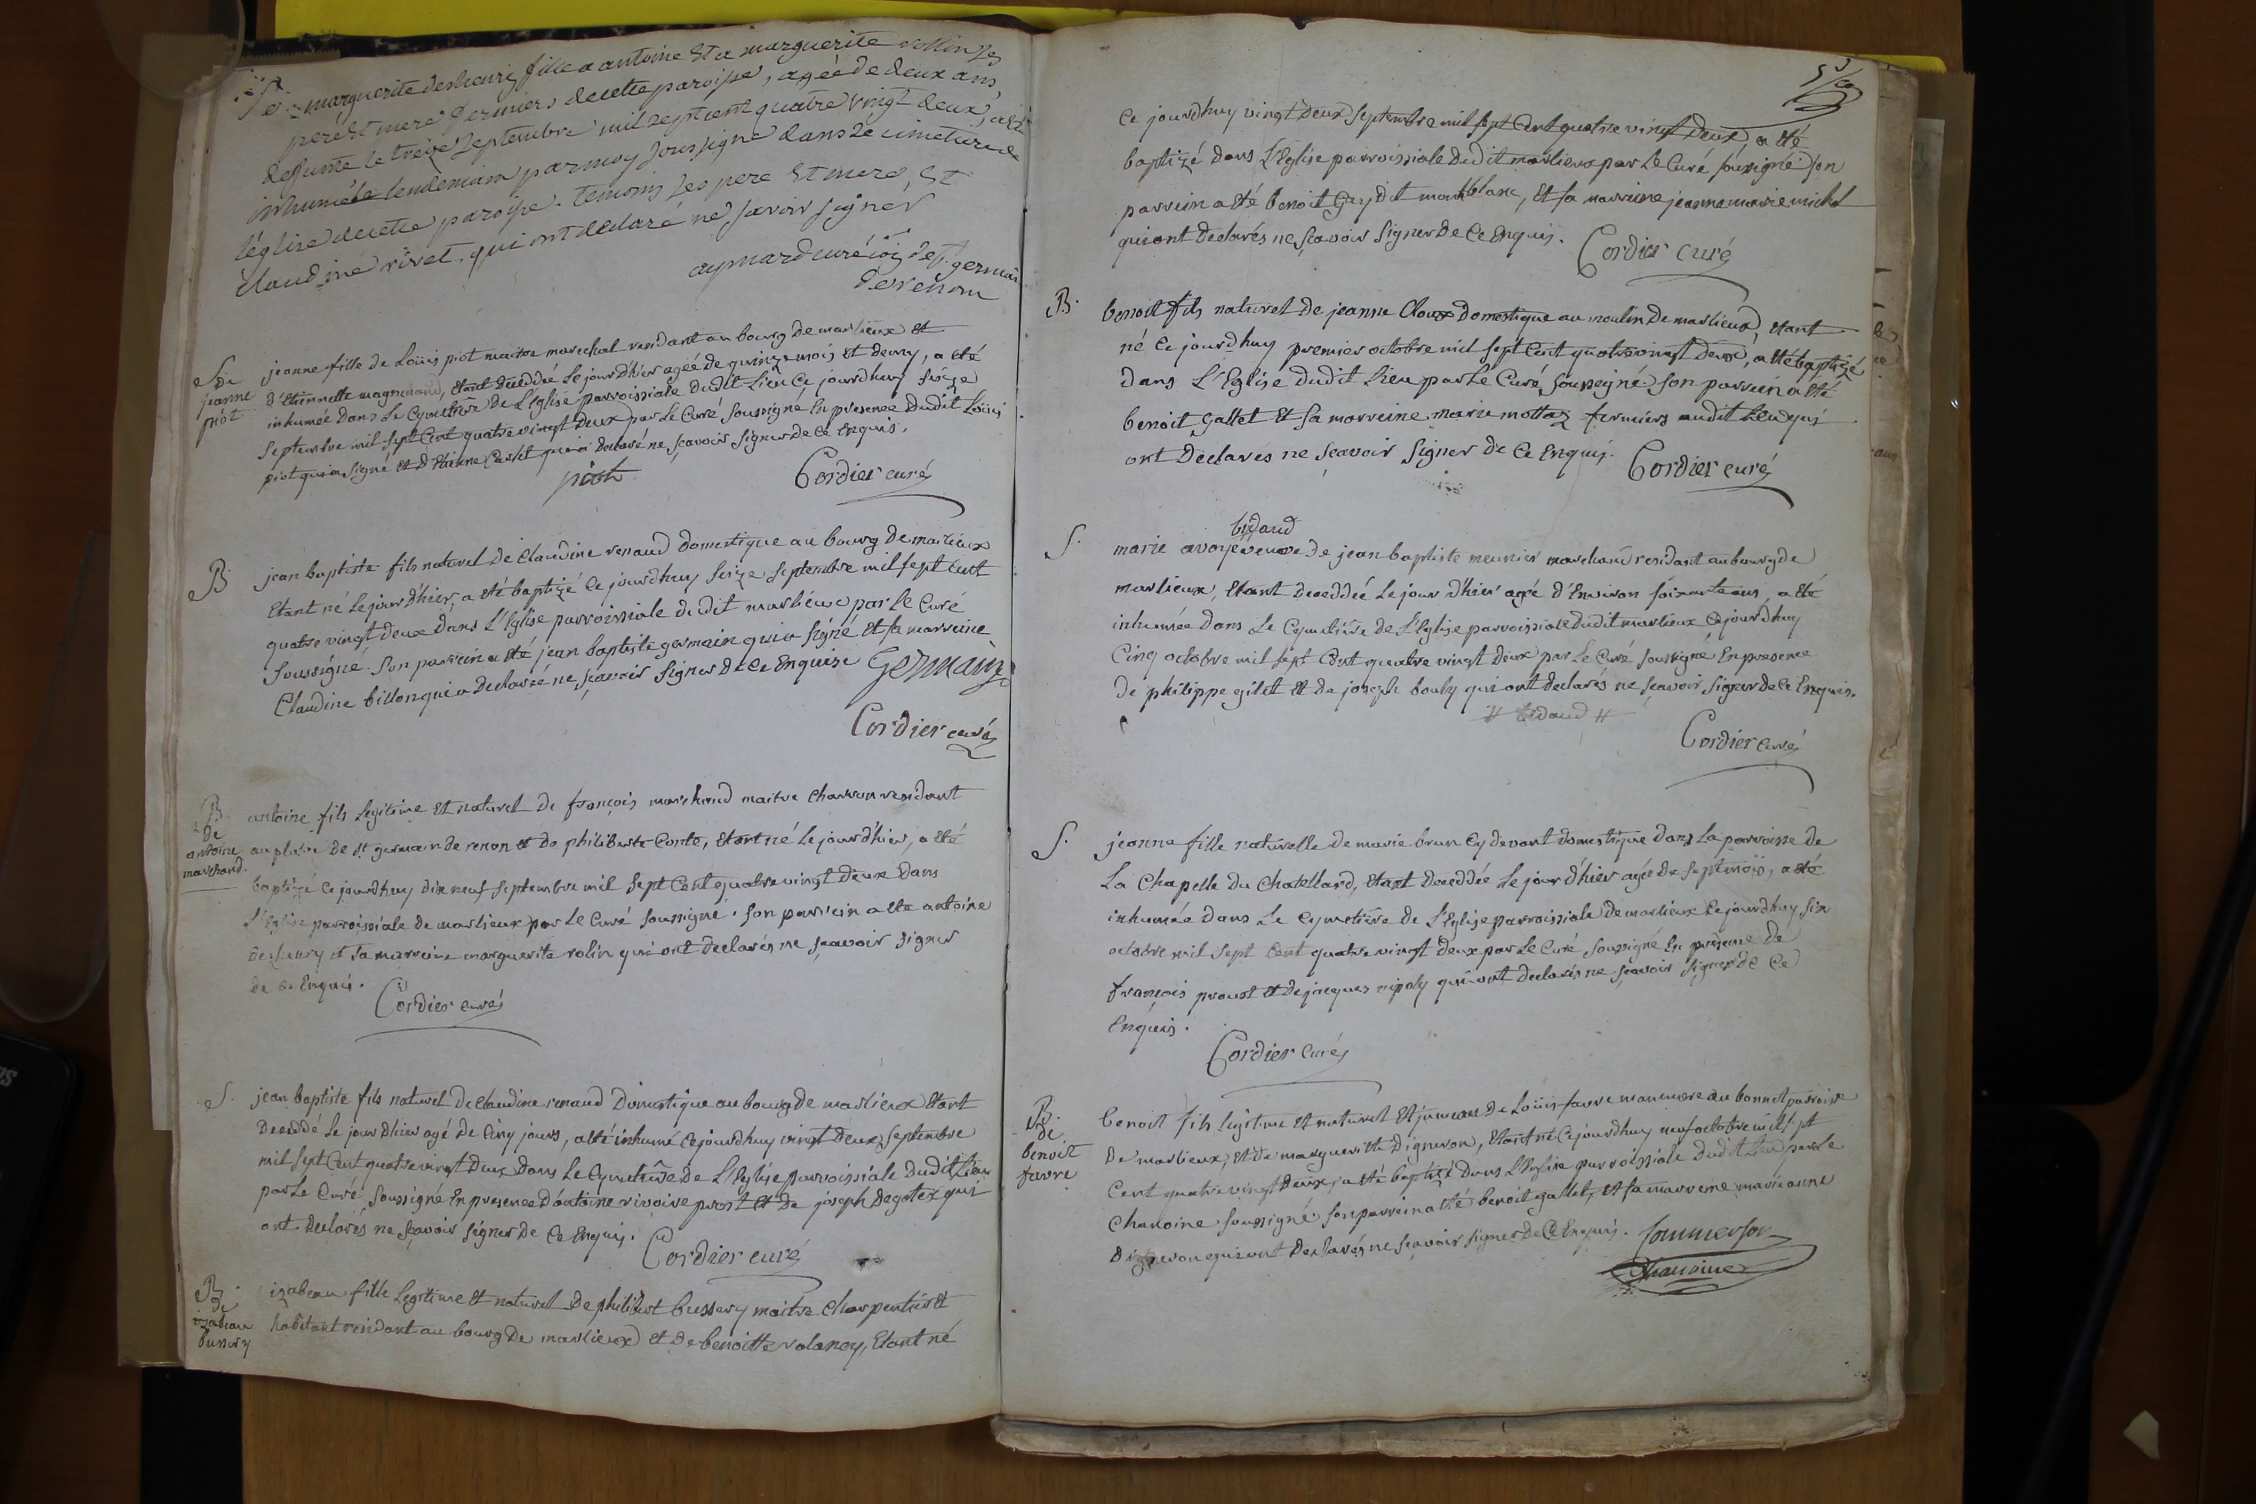 marguerite desheury fille a antoine Et a marguerite rollin ses
pere Et mere fermiers de cette paroisse, agée de deux ans,
defunte le treize septembre mil sept cent quatre vingt deux, a été
inhumée le lendemain par moy soussigné dans le cimetiere de
l'église de cette paroisse. temoins ses pere Et mere, Et
Claudine rivet, qui ont déclaré ne savoir signer
aymard curé de st. germain
de renom
S. de
jeanne
piot
jeanne fille de Loüis piot maitre marechal residant au bourg de marlieux et
d'Etiennette magnenaud, étant décéddé Le jour d'hier agée de quinze mois et demy, a été
inhumée dans Le Cymetiere de L'église parroissiale dudit Lieu Ce jourdhuy seize
septembre mil sept Cent quatre vingt deux par Le Curé soussigné En presence dudit Loüis
piot qui a signé et d'Etienne qui a declaré ne sçavoir signer de Ce Enquis.
piot
Cordier curé
B
jean baptiste fils naturel de Claudine renaud domestique au bourg de marlieux
Etant né Le jour d'hier, a été baptizé Ce jourdhuy seize septembre mil sept Cent
quatre vingt deux dans L'Eglise parroissiale dudit marlieux par Le Curé
soussigné. son parrein a été jean baptiste germain qui a signé et sa marreine
Claudine billon qui a declaré ne sçavoir signer de Ce Enquise Germain
Cordier curé
B.
de
antoine
marchand.
antoine fils Legitime Et naturel de françois marchand maitre Charron residant
au de st germain de renon et de philiberte Conte, étant né Le jour d'hier, a été
baptizé Ce jourdhuy dix neuf septembre mil sept Cent quatre vingt deux dans
L'Eglise parroissiale de marlieux par Le Curé soussigné. son parrein a été antoine
desheury et sa marreine marguerite rolin qui ont declarés ne sçavoir signer
de Ce Enquis.
Cordier curé
S.
jean baptiste fils naturel de Claudine renaud Domestique au bourg de marlieux étant
Deceddé Le jour d'hier agé de Cinq jours, a été inhumé Ce jourdhuy vingt deux septembre
mil sept Cent quatre vingt Deux dans Le Cymetiere de L'Eglise parroissiale dudit Lieu
par Le Curé soussigné En presence d'antoine rivoire prost et de joseph degotex qui
ont declarés ne sçavoir signer de Ce Enquis.
Cordier curé
B.
de
izabeau
bussery
izabeau fille Legitime et naturel de philibert bussery maitre Charpentier et
habitant residant au bourg de marlieux et de benoitte volancy, étant né
Ce jourdhuy vingt Deux septembre mil sept Cent quatre vingt deux, a été
baptizé dans L'Eglise parroissiale dudit marlieux par Le Curé soussigné son
parrein a été benoit Guy dit blanc, Et sa marreine jeanne marie michel
qui ont declarés ne sçavoir signer de Ce Enquis.
Cordier curé
B.
benoit fils naturel de jeanne Cloux domestique au moulin de marlieux, étant
né Ce jourdhuy premier octobre mil sept Cent quatre vingt deux, a été baptizé
dans L'Eglise dudit Lieu par Le Curé soussigné son parrein a été
benoit gallet Et sa marreine marie mottaz fermiers audit Lieu qui
ont declarés ne sçavoir signer de Ce Enquis.
Cordier curé
S.
bidaud
marie avoye veuve de jean baptiste meunier marchand residant au bourg de
marlieux, étant deceddée Le jour d'hier agé d'Environ soixante ans, a été
inhumée dans Le Cymetiere de L'Eglise parroissiale dudit marlieux Ce jourdhuy
Cinq octobre mil sept Cent quatre vingt deux par Le Curé soussigné En presence
de philippe gilet et de joseph bouly qui ont declarés ne sçavoir signer de Ce Enquis.
# bidaud #
Cordier curé
S.
jeanne fille naturelle de marie brun Cy devant domestique dans La parroisse de
La Chapelle du Chatellard, étant deceddée Le jour d'hier agée de sept mois, a été
inhumée dans Le Cymetiere de L'Eglise parroissiale de marlieux Ce jourdhuy six
octobre mil sept Cent quatre vingt deux par Le Curé soussigné En presence de
françois prevost et de jacques nipoly qui ont declarés ne sçavoir signer de Ce
Enquis.
Cordier curé
B.
de
benoit
favre
benoit fils Legitime Et naturel Et jumeau de Loüis favre manuvre au bonnet parroisse
de marlieux, et de marguerite digneron, étant né Ce jourdhuy neuf octobre mil sept
Cent quatre vingt deux, a été baptizé dans L'Eglise parroissiale dudit Lieu par Le
Chanoine soussigné son parrein a été benoit gallet, Et sa marreine marie anne
digneron qui ont declarés ne sçavoir signer de Ce Enquis.
Sommerson
Chanoine